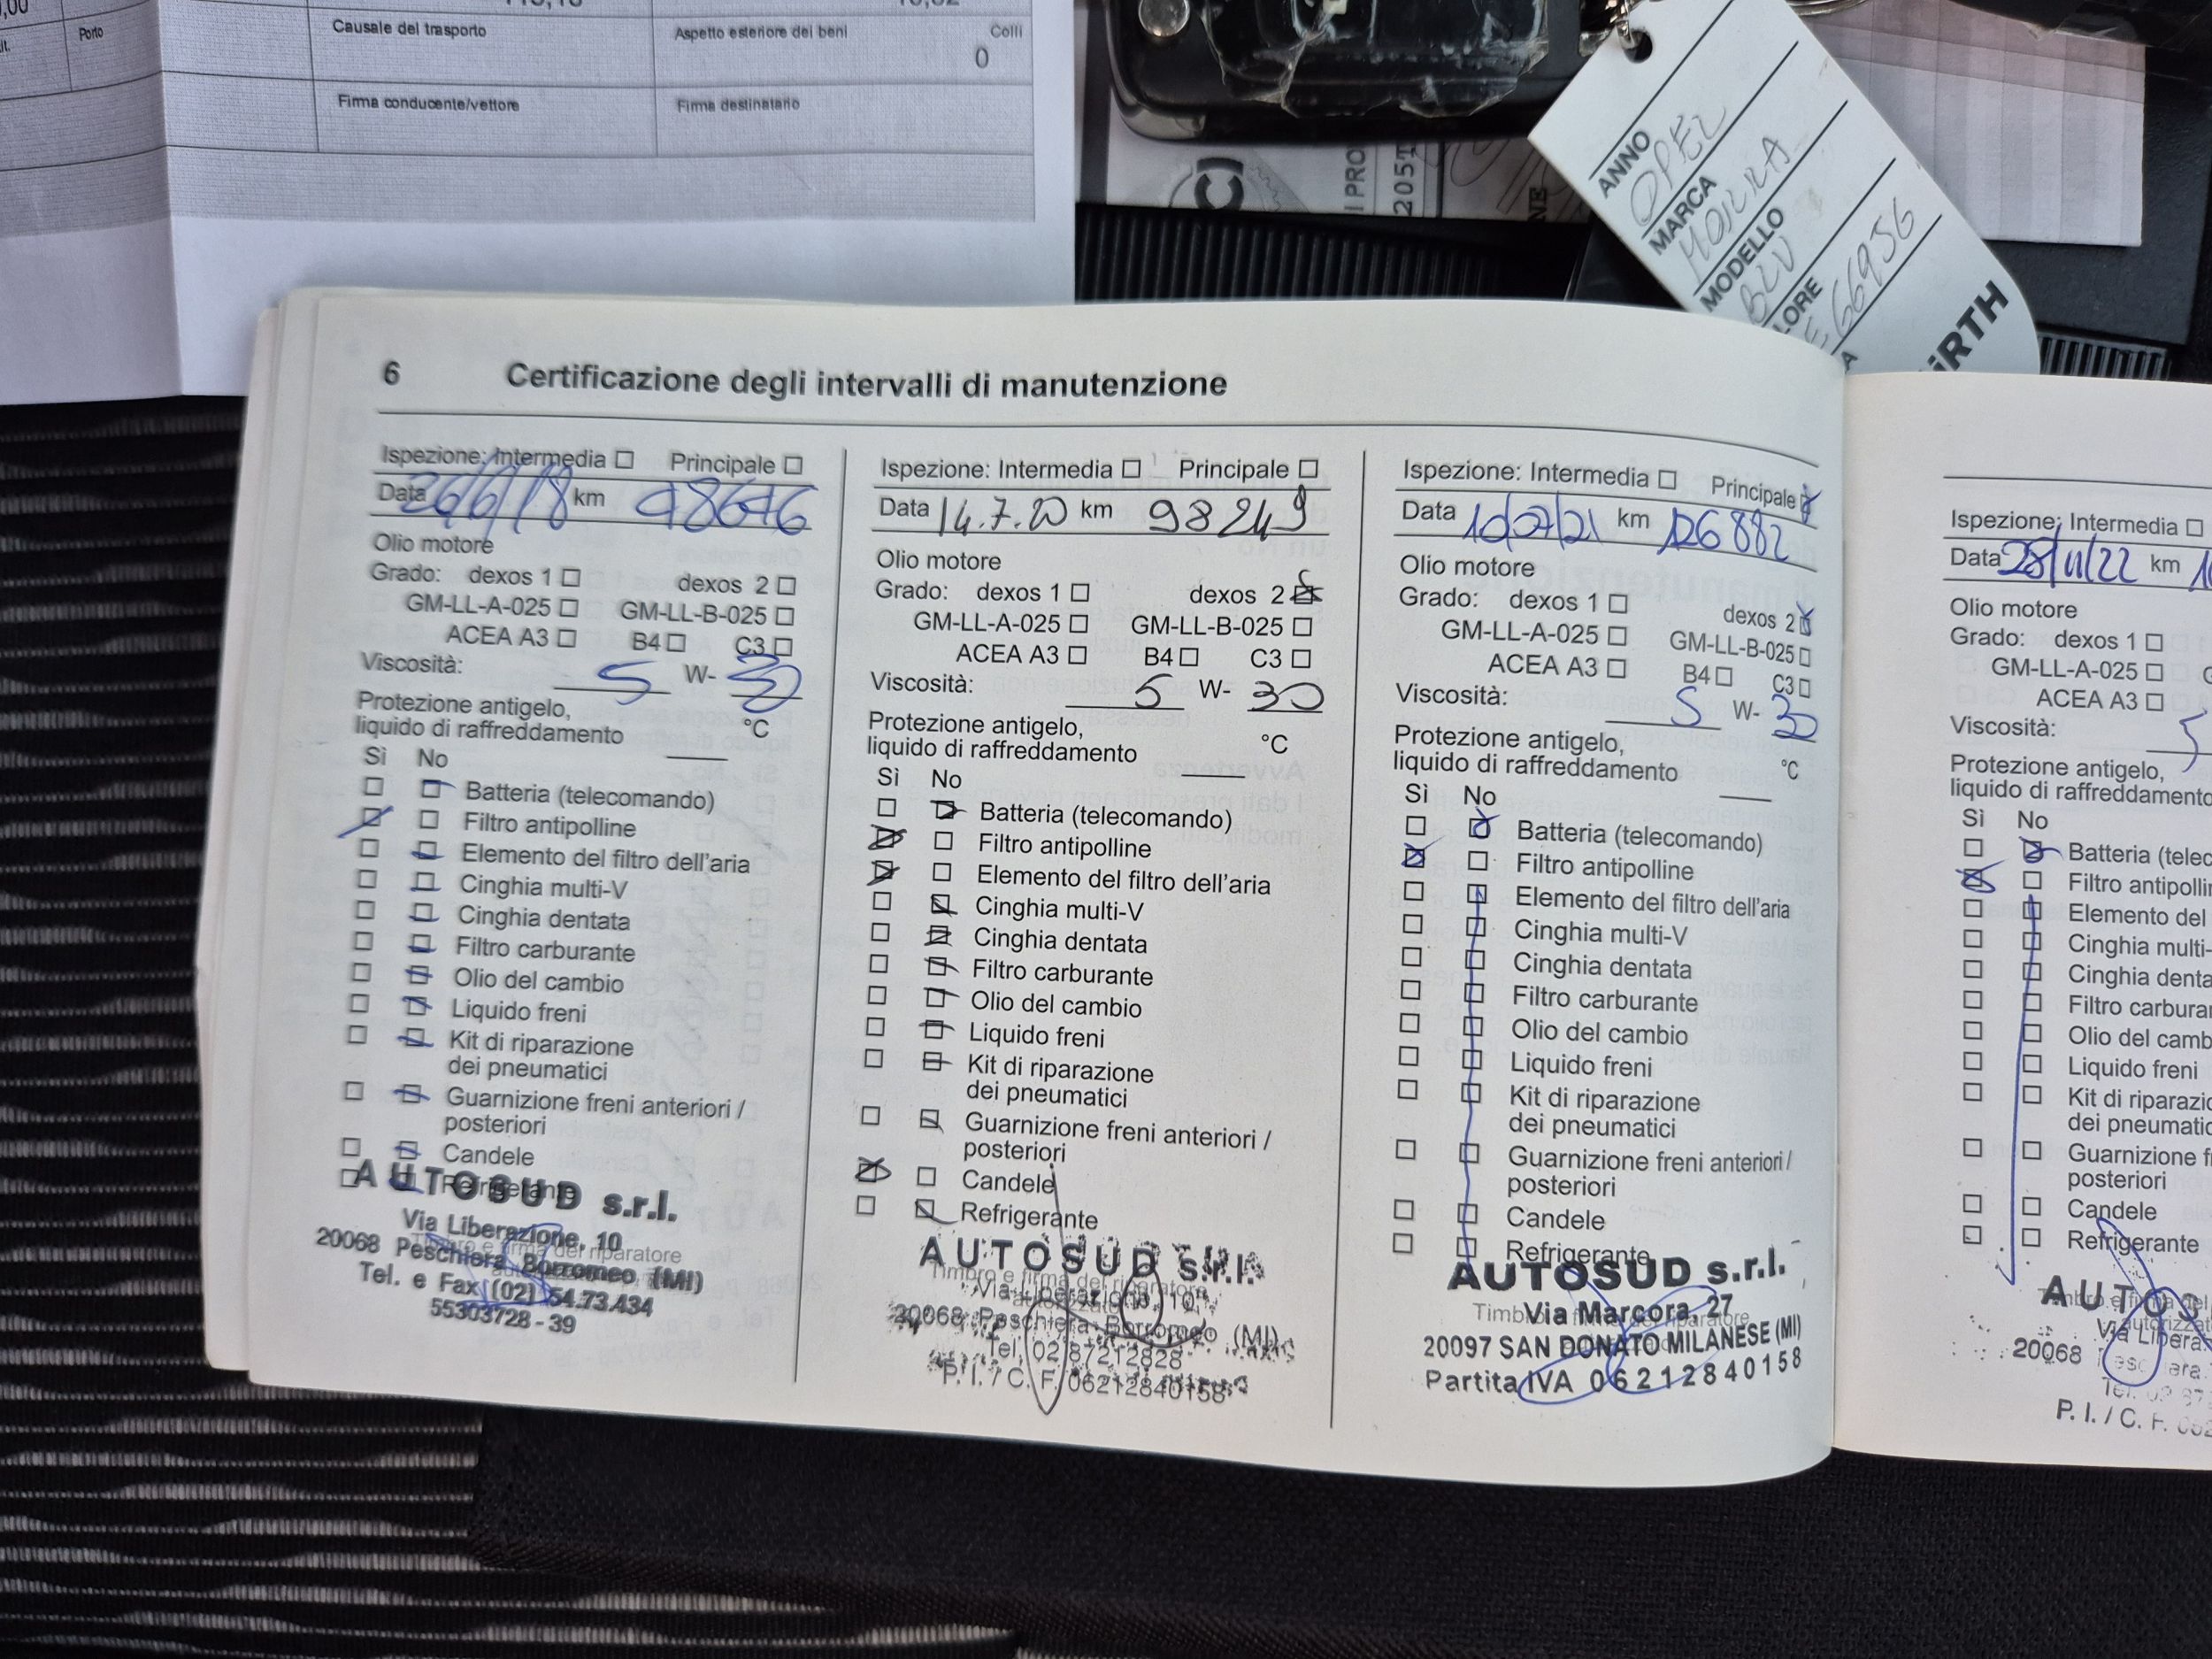 Porto
Causale del trasporto
Aspetto esteriore dei beni
Colli
0
Firma conducente/vettore
Firma destinatario
I PRO
205T
ANNO
OPEL
MARCA
MODELLO
BLU
LORE
66956
6 Certificazione degli intervalli di manutenzione
Ispezione: Intermedia Principale
Data 26/6/18 km 48676
Olio motore
Grado: dexos 1 dexos 2
GM-LL-A-025 GM-LL-B-025
ACEA A3 B4 C3
Viscosità: 5 W- 30
Protezione antigelo,
liquido di raffreddamento °C
Sì No
Batteria (telecomando)
Filtro antipolline
Elemento del filtro dell'aria
Cinghia multi-V
Cinghia dentata
Filtro carburante
Olio del cambio
Liquido freni
Kit di riparazione
dei pneumatici
Guarnizione freni anteriori /
posteriori
Candele
Refrigerante
AUTOSUD s.r.l.
Via Liberazione, 10
Timbro e firma del riparatore
20068 Peschiera Borromeo (MI)
Tel. e Fax (02) 54.73.434
55303728 - 39
Ispezione: Intermedia Principale
Data 14.7.20 km 98249
Olio motore
Grado: dexos 1 dexos 2
GM-LL-A-025 GM-LL-B-025
ACEA A3 B4 C3
Viscosità: 5 W- 30
Protezione antigelo,
liquido di raffreddamento °C
Sì No
Batteria (telecomando)
Filtro antipolline
Elemento del filtro dell'aria
Cinghia multi-V
Cinghia dentata
Filtro carburante
Olio del cambio
Liquido freni
Kit di riparazione
dei pneumatici
Guarnizione freni anteriori /
posteriori
Candele
Refrigerante
AUTOSUD s.r.l.
Timbro e firma del riparatore
autorizzato
Via Liberazione, 10
20068 Peschiera Borromeo (MI)
Tel. 02 87212828
P. I. / C. F. 06212840158
Ispezione: Intermedia Principale
Data 10/07/21 km 126882
Olio motore
Grado: dexos 1 dexos 2
GM-LL-A-025 GM-LL-B-025
ACEA A3 B4 C3
Viscosità: 5 W- 30
Protezione antigelo,
liquido di raffreddamento °C
Sì No
Batteria (telecomando)
Filtro antipolline
Elemento del filtro dell'aria
Cinghia multi-V
Cinghia dentata
Filtro carburante
Olio del cambio
Liquido freni
Kit di riparazione
dei pneumatici
Guarnizione freni anteriori /
posteriori
Candele
Refrigerante
AUTOSUD s.r.l.
Timbro e firma del riparatore
Via Marcora, 27
20097 SAN DONATO MILANESE (MI)
Partita IVA 06212840158
Ispezione: Intermedia
Data 28/11/22 km
Olio motore
Grado: dexos 1
GM-LL-A-025
ACEA A3
Viscosità: 5
Protezione antigelo,
liquido di raffreddamento
Sì No
Batteria
Filtro
Elemento del
Cinghia
Cinghia
Filtro
Olio del
Liquido freni
Kit di
dei
Guarnizione
posteriori
Candele
Refrigerante
Timbro e firma del
20068
P. I. / C. F.